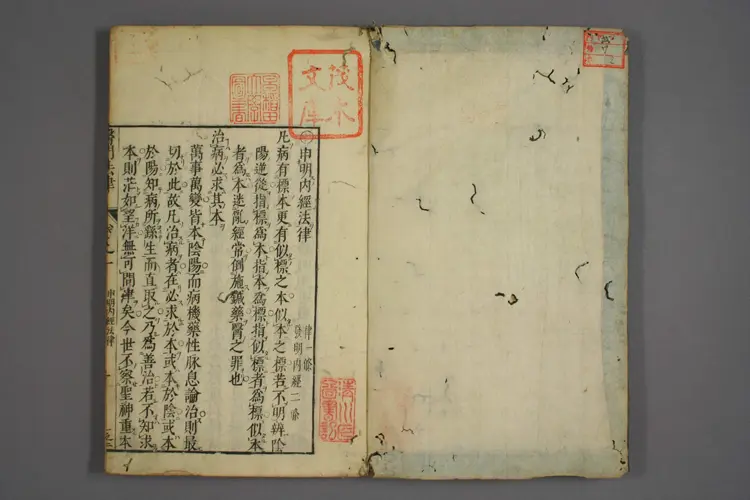 申明內經法律
律一條
發明內經二條
凡病有標本更有似標之本似本之標若不明辨陰
陽逆從指標爲本指本爲標指似標者爲標似本
者爲本迷亂經常倒施鍼藥醫之罪也
治病必求其本
萬事萬變皆本陰陽而病機藥性脉息論治則最
切於此故凡治病者在必求於本或本於陰或本
於陽知病所繇生而直取之乃爲善治若不知求
本則茫如望洋無可問津矣今世不察聖神重本
醫門法律
卷之一
申明內經法律
茂木
文庫